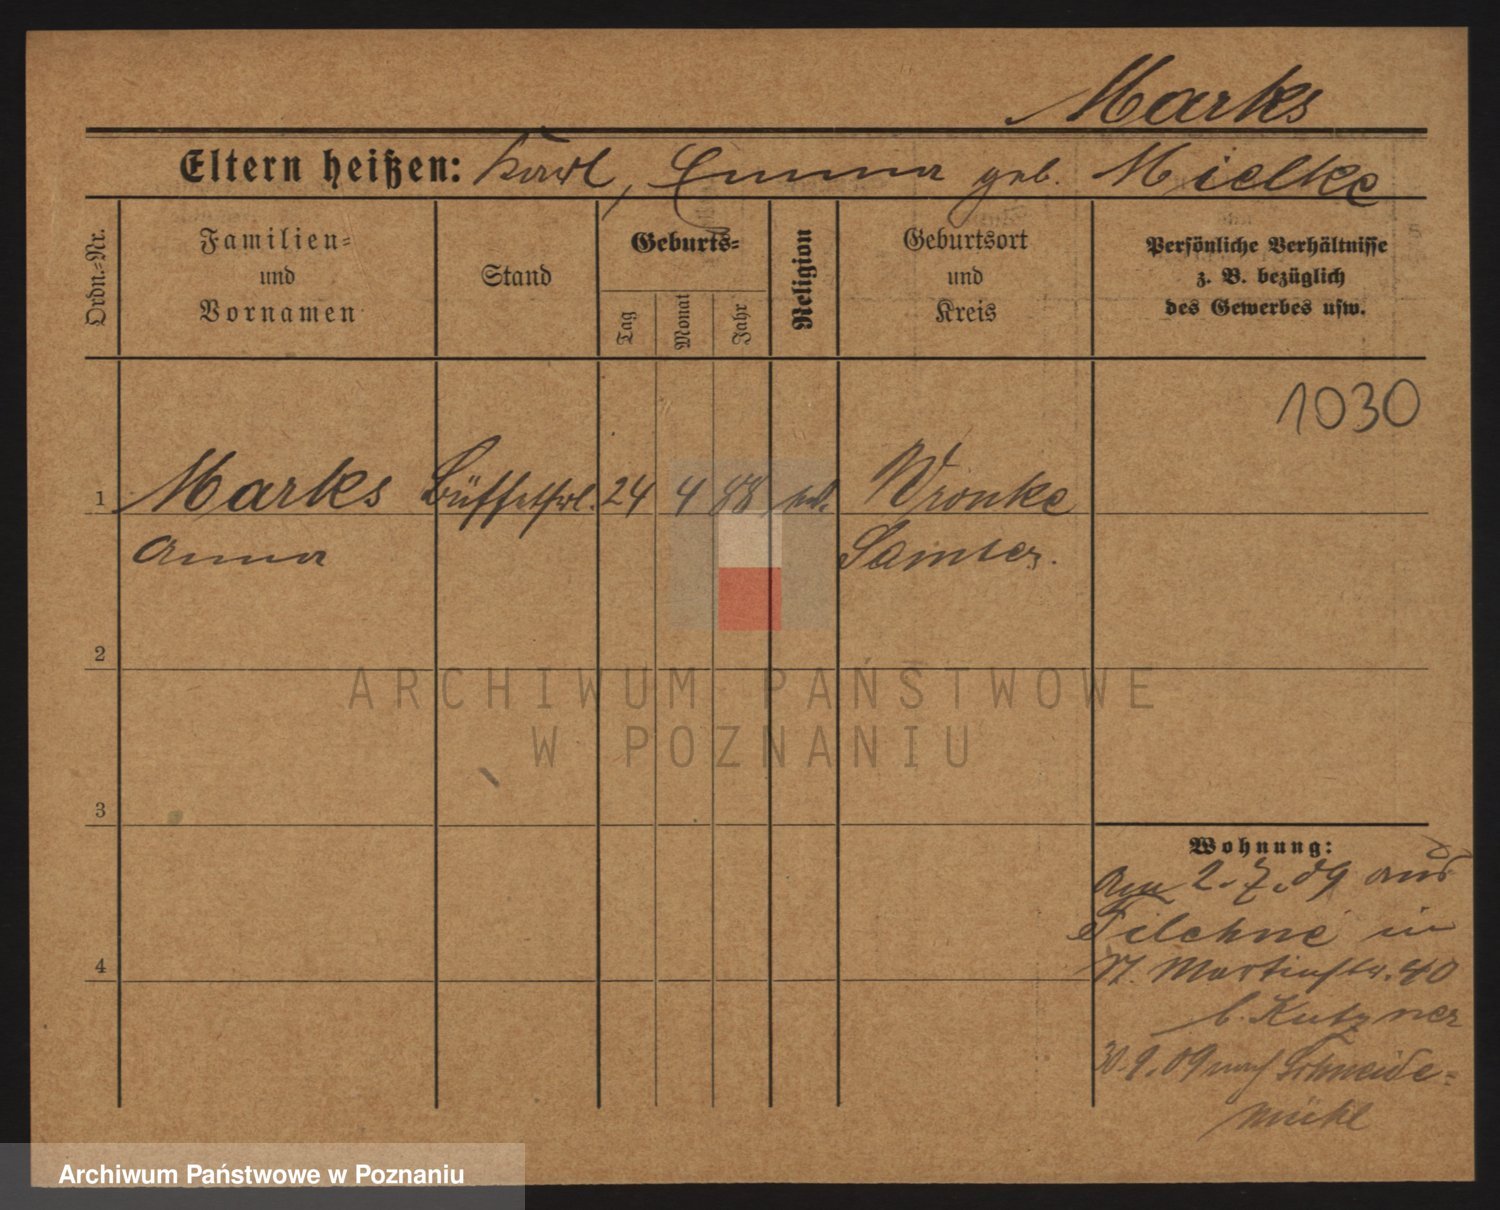 Marks
Eltern heißen: Karl, Emma geb. Mielke
Ordn.-Nr.
Familien-
und
Vornamen
Stand
Geburts-
Tag
Monat
Jahr
Religion
Geburtsort
und
Kreis
Persönliche Verhältnisse
z. B. bezüglich
des Gewerbes usw.
1030
1 Marks Büffetfrl. 24 4 88 Wronke
Anna Samter.
2
ARCHIWUM PAŃSTWOWE
W POZNANIU
3
Wohnung:
Am 2.7.09 aus
Filehne in
St. Martinstr. 40
b. Kutzner
4
30.9.09 nach Schneide-
mühl
Archiwum Państwowe w Poznaniu